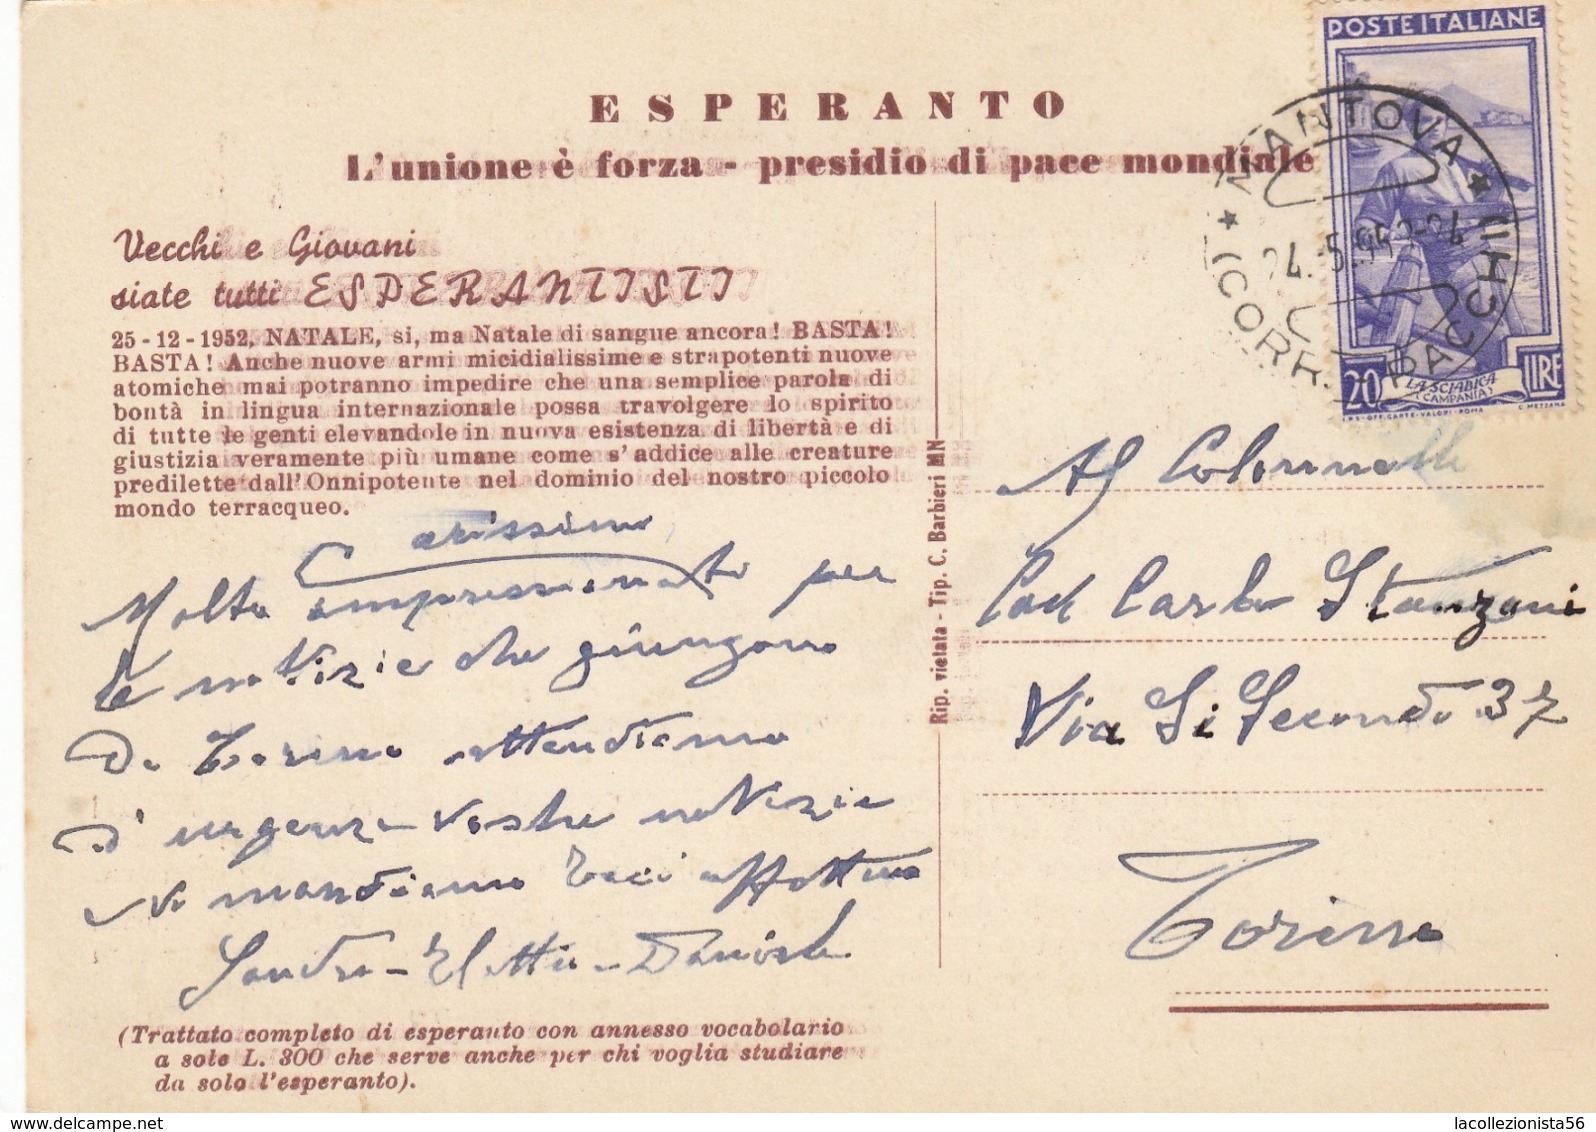 POSTE ITALIANE
ESPERANTO
L'unione è forza - presidio di pace mondiale
MANTOVA
(CORR. PACCHI)
20 LIRE
LA SCIABICA
(CAMPANIA)
I.P.S.-OFF.CARTE-VALORI-ROMA C. MEZZANA
Vecchi e Giovani
siate tutti ESPERANTISTI
25-12-1952, NATALE, si, ma Natale di sangue ancora! BASTA!
BASTA! Anche nuove armi micidialissime e strapotenti nuove
atomiche mai potranno impedire che una semplice parola di
bontà in lingua internazionale possa travolgere lo spirito
di tutte le genti elevandole in nuova esistenza di libertà e di
giustizia veramente più umane come s'addice alle creature
predilette dall'Onnipotente nel dominio del nostro piccolo
mondo terracqueo.
Carissimi
Molto impressionati per
le notizie che giungono
Da Torino attendiamo
d'urgenza vostre notizie
vi mandiamo baci affettuosi
Sandro -
Rip. vietata - Tip. C. Barbieri MN
Al Colonnello
Carlo Stanzani
Via Si Secondo 37
Torino
(Trattato completo di esperanto con annesso vocabolario
a sole L. 300 che serve anche per chi voglia studiare
da solo l'esperanto).
lacollezionista56